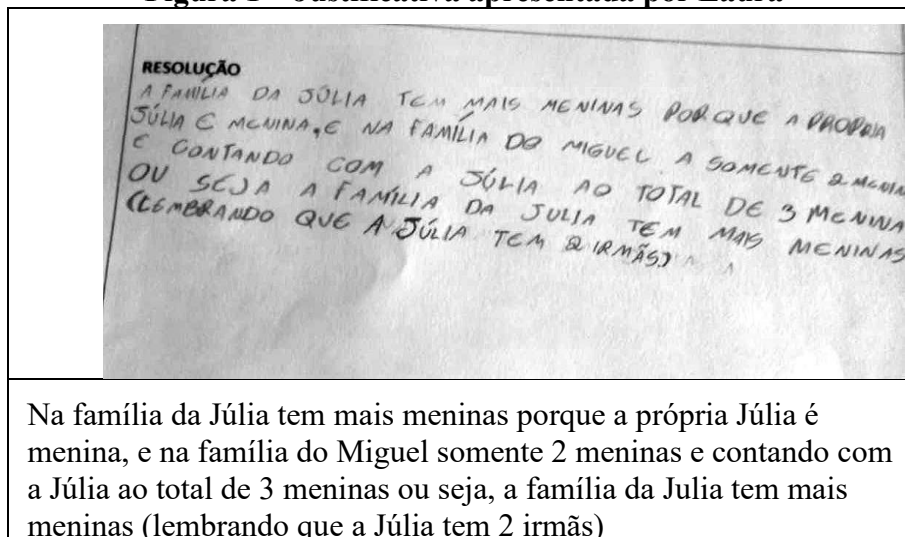 RESOLUÇÃO
A FAMÍLIA DA JÚLIA TEM MAIS MENINAS PORQUE A PROPRIA
JÚLIA E MENINA, E NA FAMÍLIA DO MIGUEL A SOMENTE 2
E CONTANDO COM A JÚLIA AO TOTAL DE 3 MENINA
OU SEJA A FAMÍLIA DA JULIA TEM MAIS MENINAS
(LEMBRANDO QUE A JÚLIA TEM 2 IRMÃS)
Na família da Júlia tem mais meninas porque a própria Júlia é
menina, e na família do Miguel somente 2 meninas e contando com
a Júlia ao total de 3 meninas ou seja, a família da Julia tem mais
meninas (lembrando que a Júlia tem 2 irmãs)